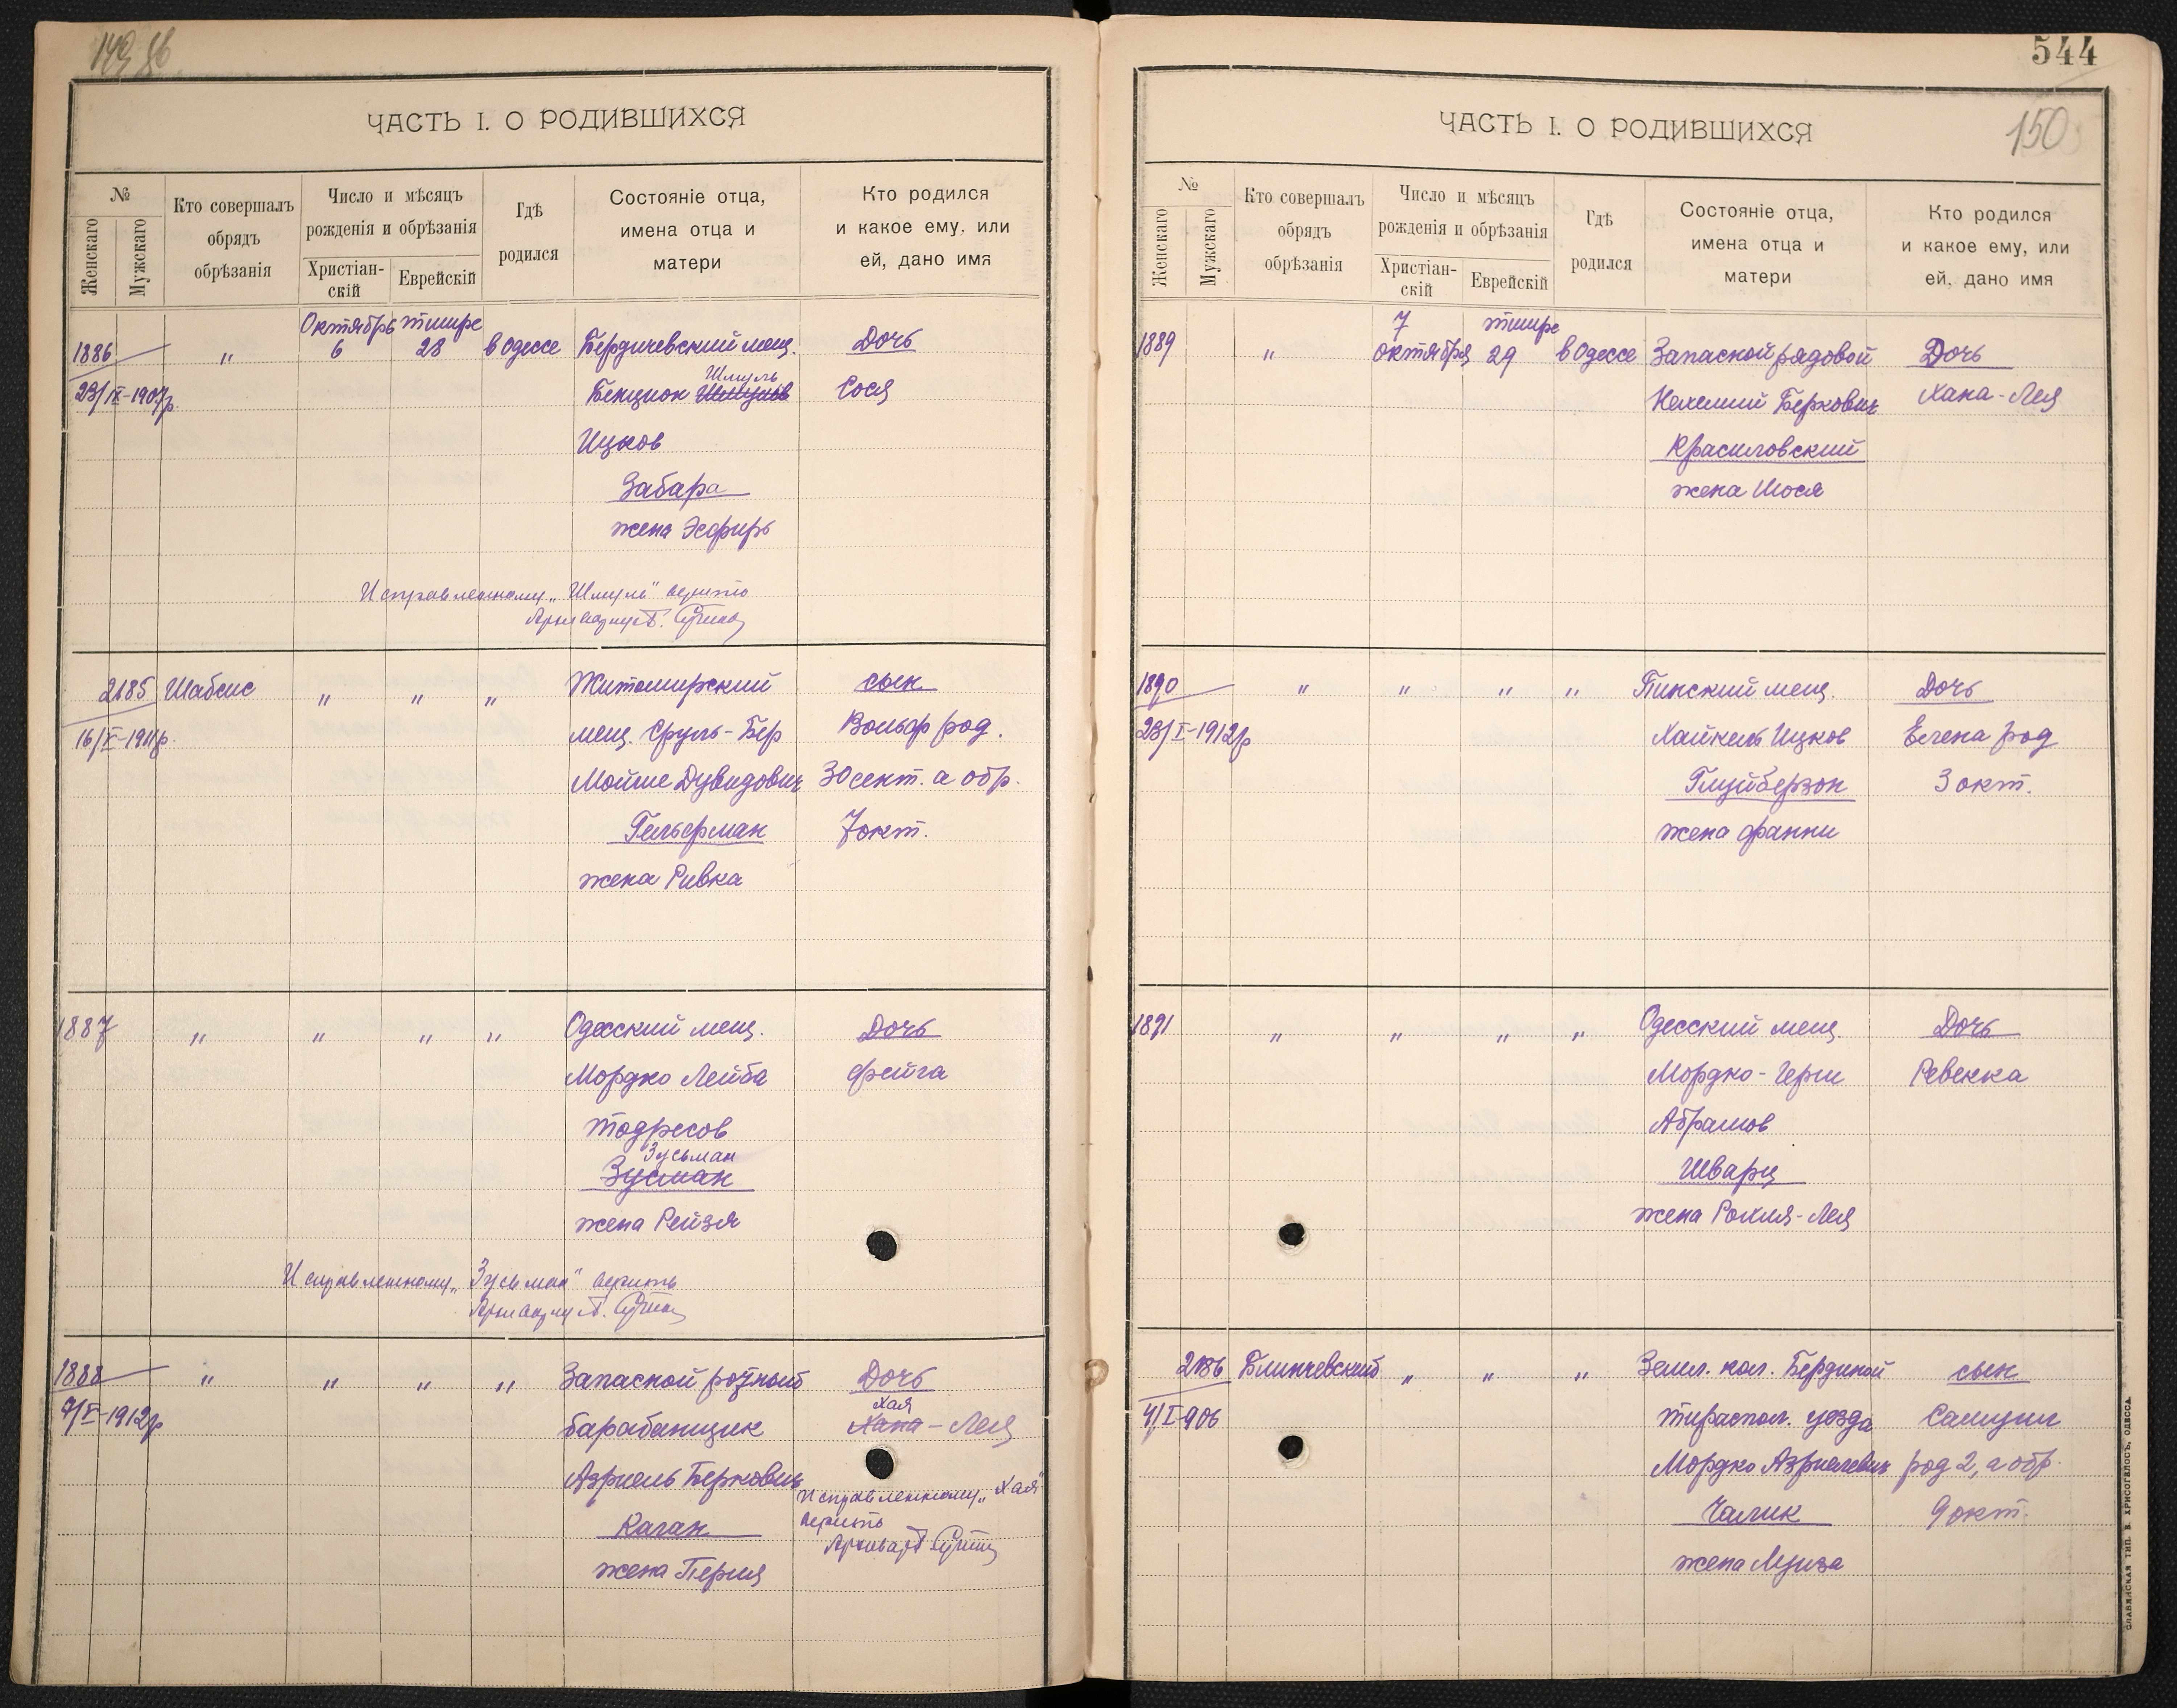 149 об
ЧАСТЬ I. О РОДИВШИХСЯ
№
Женскаго
Мужскаго
Кто совершалъ
обрядъ
обрѣзанія
Число и мѣсяцъ
рожденія и обрѣзанія
Христіан-
скій
Еврейскій
Гдѣ
родился
Состояніе отца,
имена отца и
матери
Кто родился
и какое ему, или
ей, дано имя
Октябрь тишре
1886 " 6 28 в Одессе Бердичевский мещ. Дочь
Шмуль
23/IX-1907р Бенцион Шмулев Сося
Ицков
Забара
жена Эсфирь
Исправленному "Шмуль" верить
2185 Шабсис " " " Житомирский сын
16/X-1911р. мещ. Сруль-Бер Вольф род.
Мойше Дувидович 30 сент. а обр.
Гельфман 7 окт.
жена Ривка
1887 " " " " Одесский мещ. Дочь
Мордко Лейба Фейга
Тодресов
Зусьман
Зусман
жена Рейзя
Исправленному "Зусьман" верить
1888 " " " " Запасной ротный Дочь
Хая
9/V-1912р барабанщик Хана-Лея
Азриель Беркович
Исправленному "Хая"
Каган верить
жена Перля
544
150
ЧАСТЬ I. О РОДИВШИХСЯ
№
Женскаго
Мужскаго
Кто совершалъ
обрядъ
обрѣзанія
Число и мѣсяцъ
рожденія и обрѣзанія
Христіан-
скій
Еврейскій
Гдѣ
родился
Состояніе отца,
имена отца и
матери
Кто родился
и какое ему, или
ей, дано имя
7 тишре
1889 " октября 29 в Одессе Запасной рядовой Дочь
Нехемий Беркович Хана-Лея
Красиловский
жена Шося
1890 " " " " Пинский мещ. Дочь
23/I-1912р Хайкель Ицков Елена род
Глузберзон 3 окт.
жена Фанни
1891 " " " " Одесский мещ. Дочь
Мордко-Герш Ревекка
Абрамов
Шварц
жена Рохля-Лея
2186 Блинчевский " " " Земл. кол. Бердиной сын
4/I-906 Тираспол. уезда Самуил
Мордко Азриелевич род 2, а обр.
Чалик 9 окт.
жена Луиза
СЛАВЯНСКАЯ ТИП. В. ХРИСОГЕЛОСЪ, ОДЕССА.